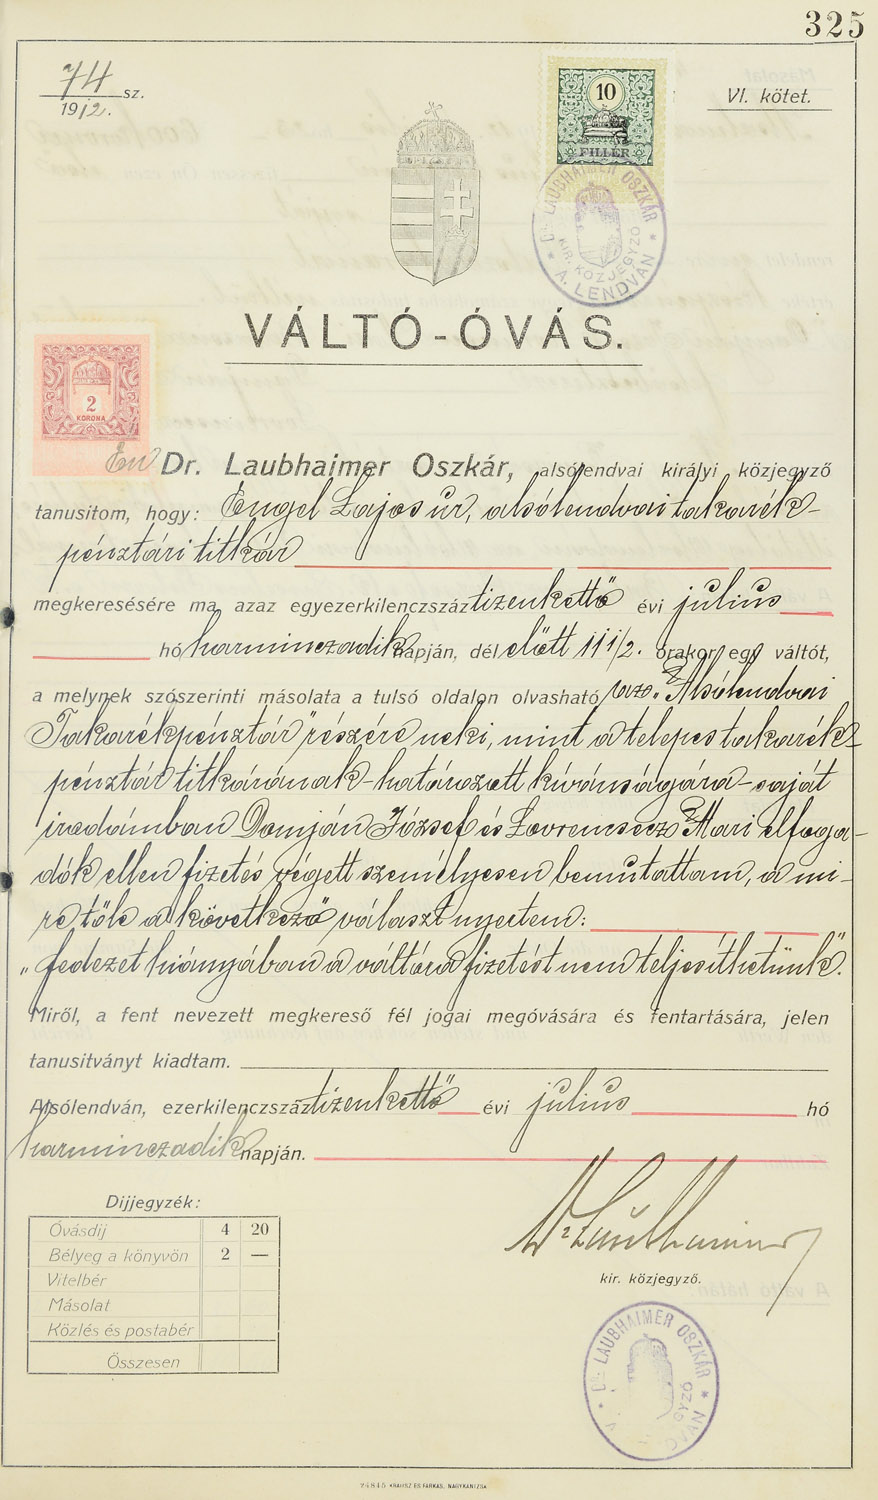 325
74 sz.
1912.
VI. kötet.
10
FILLÉR
Dr. LAUBHAIMER OSZKÁR
KIR. KÖZJEGYZŐ
* A. LENDVÁN *
VÁLTÓ-ÓVÁS.
2
KORONA
Én Dr. Laubhaimer Oszkár, alsólendvai királyi közjegyző
tanusitom, hogy: Engel Lajos úr, alsólendvai takarék-
pénztári titkár
megkeresésére ma azaz egyezerkilenczszáztizenkettő évi július
hó harminczadik napján, dél előtt 11 1/2. órakor egy váltót,
a melynek szószerinti másolata a tulsó oldalon olvasható, az „Alsólendvai
Takarékpénztár" részére neki, mint a telepes takarék-
pénztár titkárának - határozott kívánságára - saját
irodámban Domján József és Lovrencsecz Mari elfoga-
dók ellen fizetés végett személyesen bemutattam, a mi-
re tőle a következő választ nyertem:
„fedezet hiányában a váltóra fizetést nem teljesíthetünk".
Miről, a fent nevezett megkereső fél jogai megóvására és fentartására, jelen
tanusitványt kiadtam.
Alsólendván, ezerkilenczszáztizenkettő évi július hó
harminczadik napján.
Dijjegyzék:
Óvásdij 4 20
Bélyeg a könyvön 2 —
Vitelbér
Másolat
Közlés és postabér
Összesen
Dr Laubhaimer
kir. közjegyző.
Dr. LAUBHAIMER OSZKÁR
24845 KRAUSZ ÉS FARKAS, NAGYKANIZSA